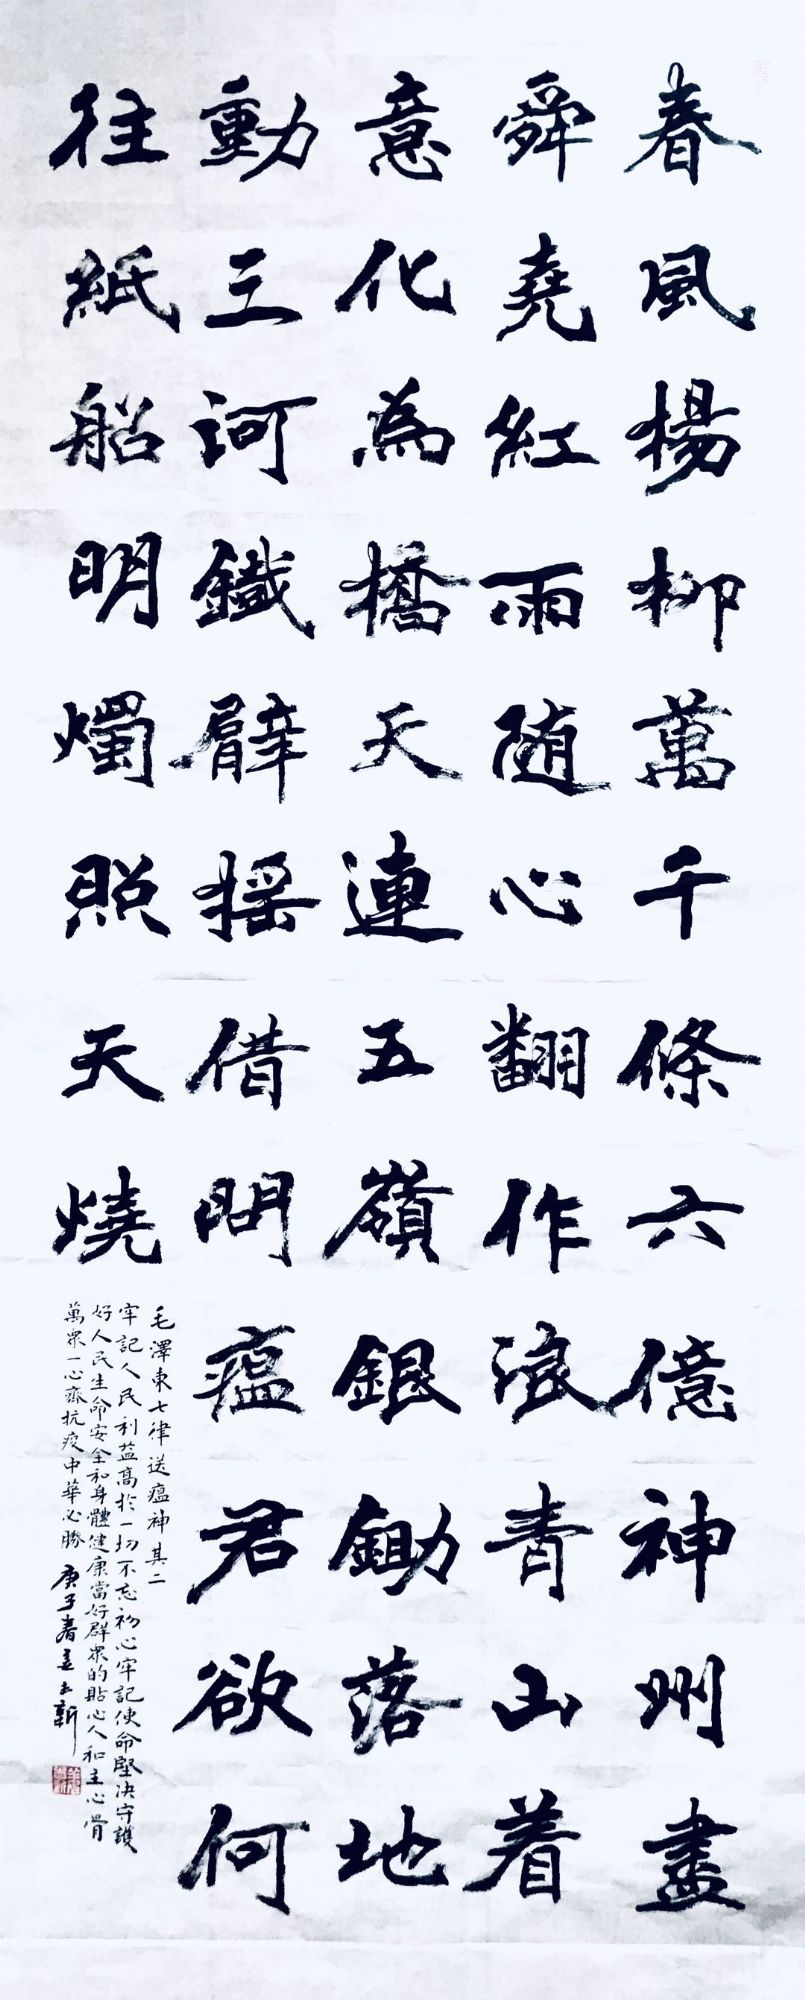 春風楊柳萬千條六億神州盡
舜堯紅雨随心翻作浪青山着
意化為橋天連五嶺銀鋤落地
動三河鐵臂摇借問瘟君欲何
往紙船明燭照天燒
毛澤東七律送瘟神其二
牢記人民利益高於一切不忘初心牢記使命堅决守護
好人民生命安全和身體健康當好群眾的貼心人和主心骨
萬眾一心齊抗疫中華必勝 庚子春